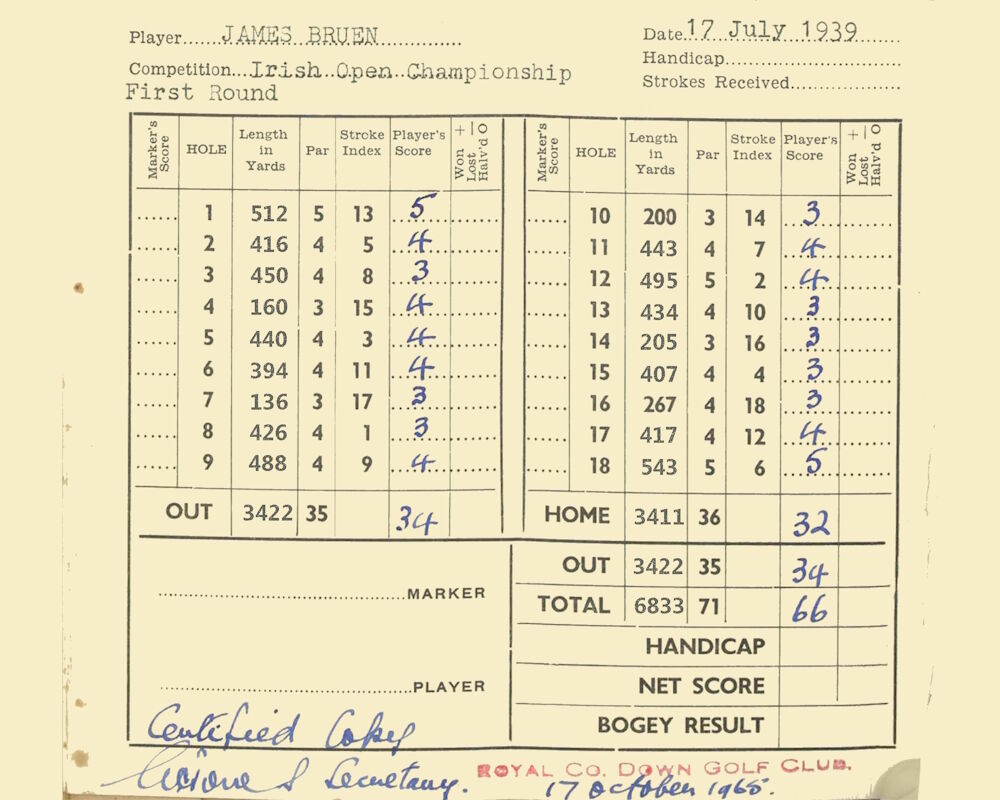 Player......JAMES BRUEN..............
Date.17 July 1939......
Handicap..............................
Competition...Irish Open Championship
Strokes Received....................
First Round
Marker's Score HOLE Length in Yards Par Stroke Index Player's Score Won + Lost — Halv'd O
Marker's Score HOLE Length in Yards Par Stroke Index Player's Score Won + Lost — Halv'd O
1 512 5 13 5
2 416 4 5 4
3 450 4 8 3
4 160 3 15 4
5 440 4 3 4
6 394 4 11 4
7 136 3 17 3
8 426 4 1 3
9 488 4 9 4
OUT 3422 35 34
10 200 3 14 3
11 443 4 7 4
12 495 5 2 4
13 434 4 10 3
14 205 3 16 3
15 407 4 4 3
16 267 4 18 3
17 417 4 12 4
18 543 5 6 5
HOME 3411 36 32
OUT 3422 35 34
TOTAL 6833 71 66
HANDICAP
NET SCORE
BOGEY RESULT
MARKER
PLAYER
Certified Copy
Secretary.
ROYAL Co. DOWN GOLF CLUB.
17 October 1965.